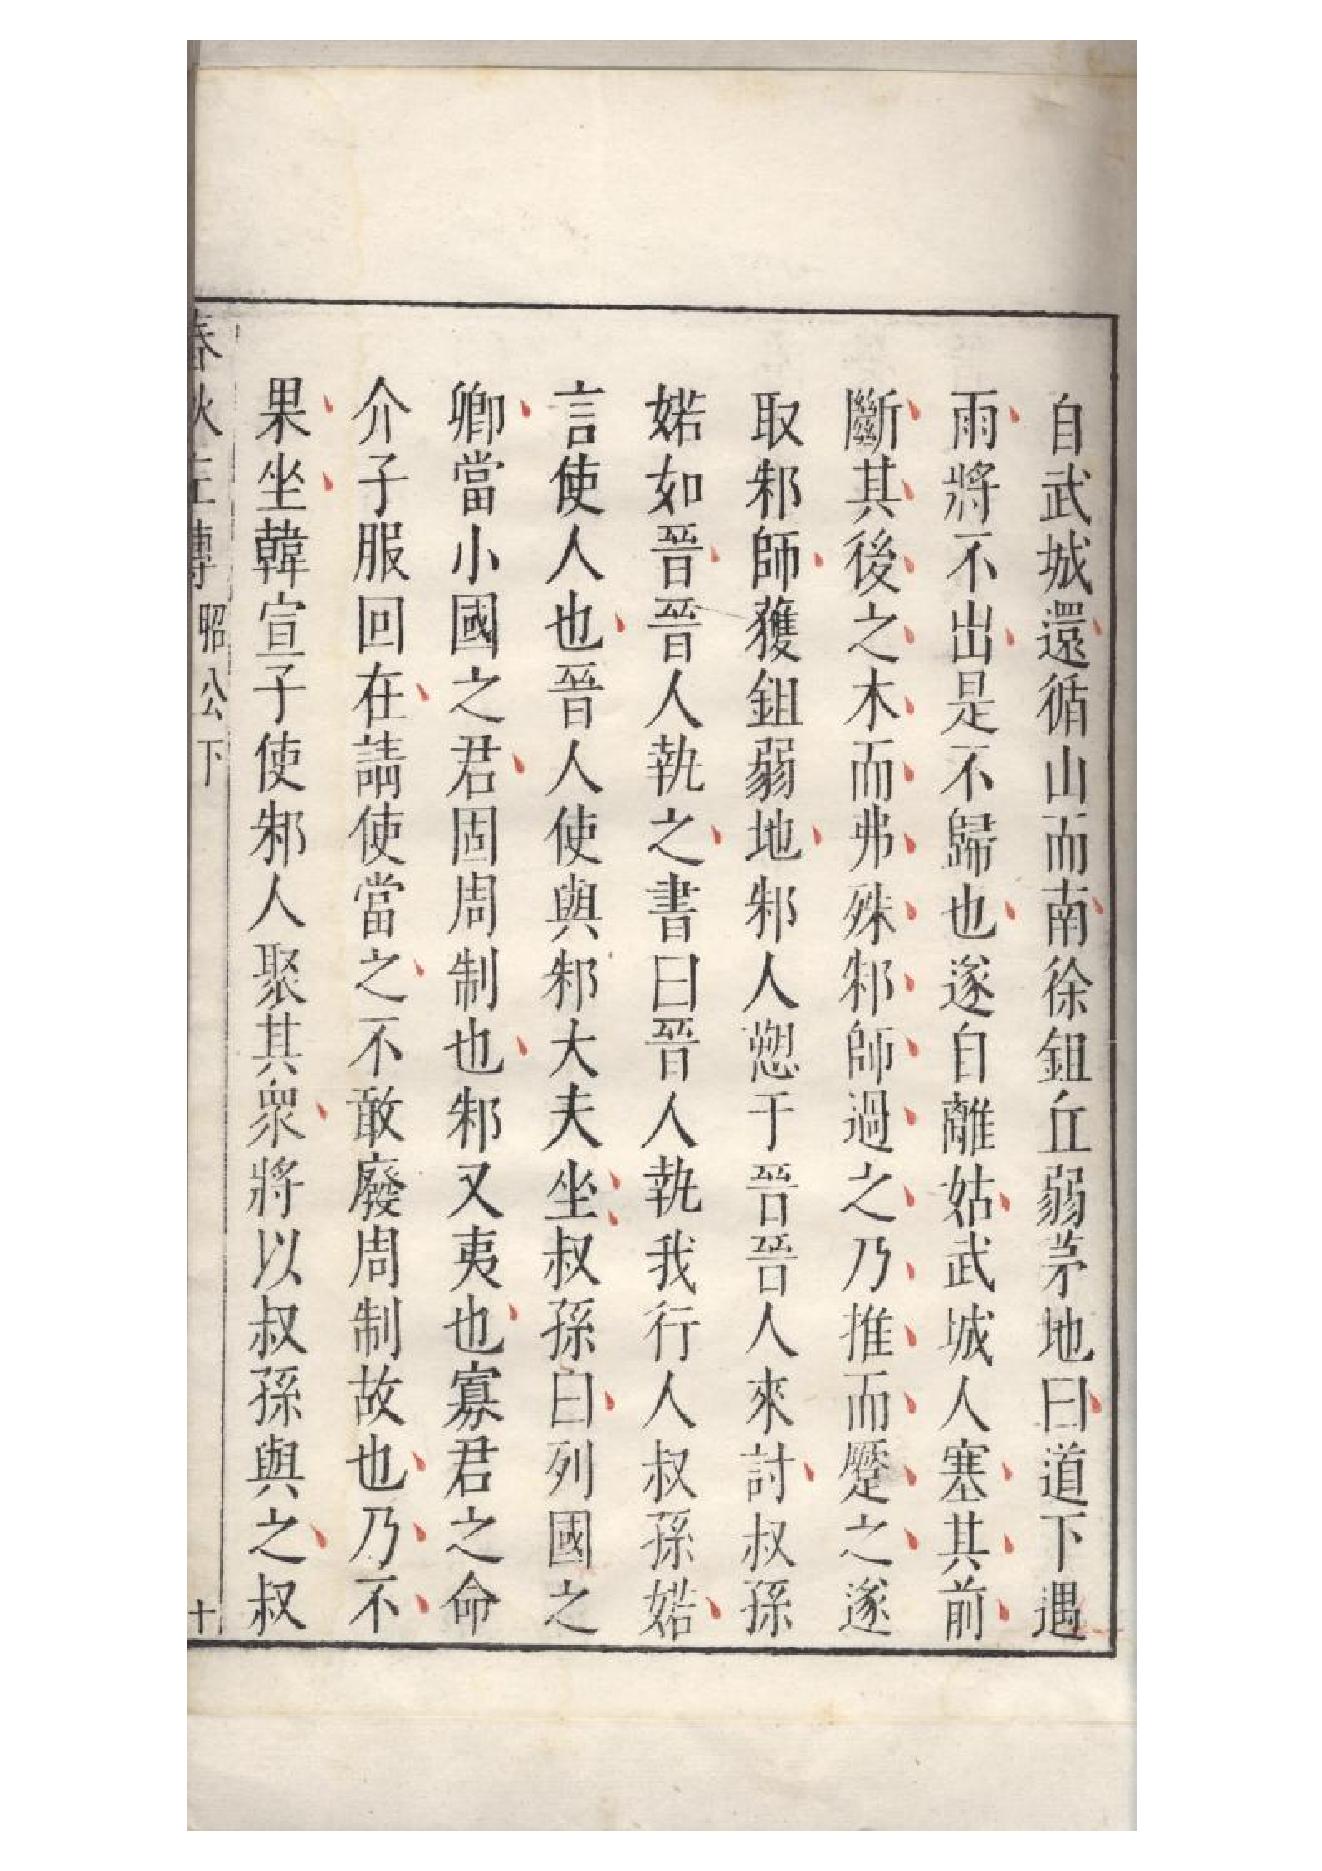 自武城還循山而南徐鉏丘弱茅地曰道下遇
雨將不出是不歸也遂自離姑武城人塞其前
斷其後之木而弗殊邾師過之乃推而蹷之遂
取邾師獲鉏弱地邾人愬于晉晉人來討叔孫
婼如晉晉人執之書曰晉人執我行人叔孫婼
言使人也晉人使與邾大夫坐叔孫曰列國之
卿當小國之君固周制也邾又夷也寡君之命
介子服回在請使當之不敢廢周制故也乃不
果坐韓宣子使邾人聚其衆將以叔孫與之叔
春秋左傳 昭公下 十